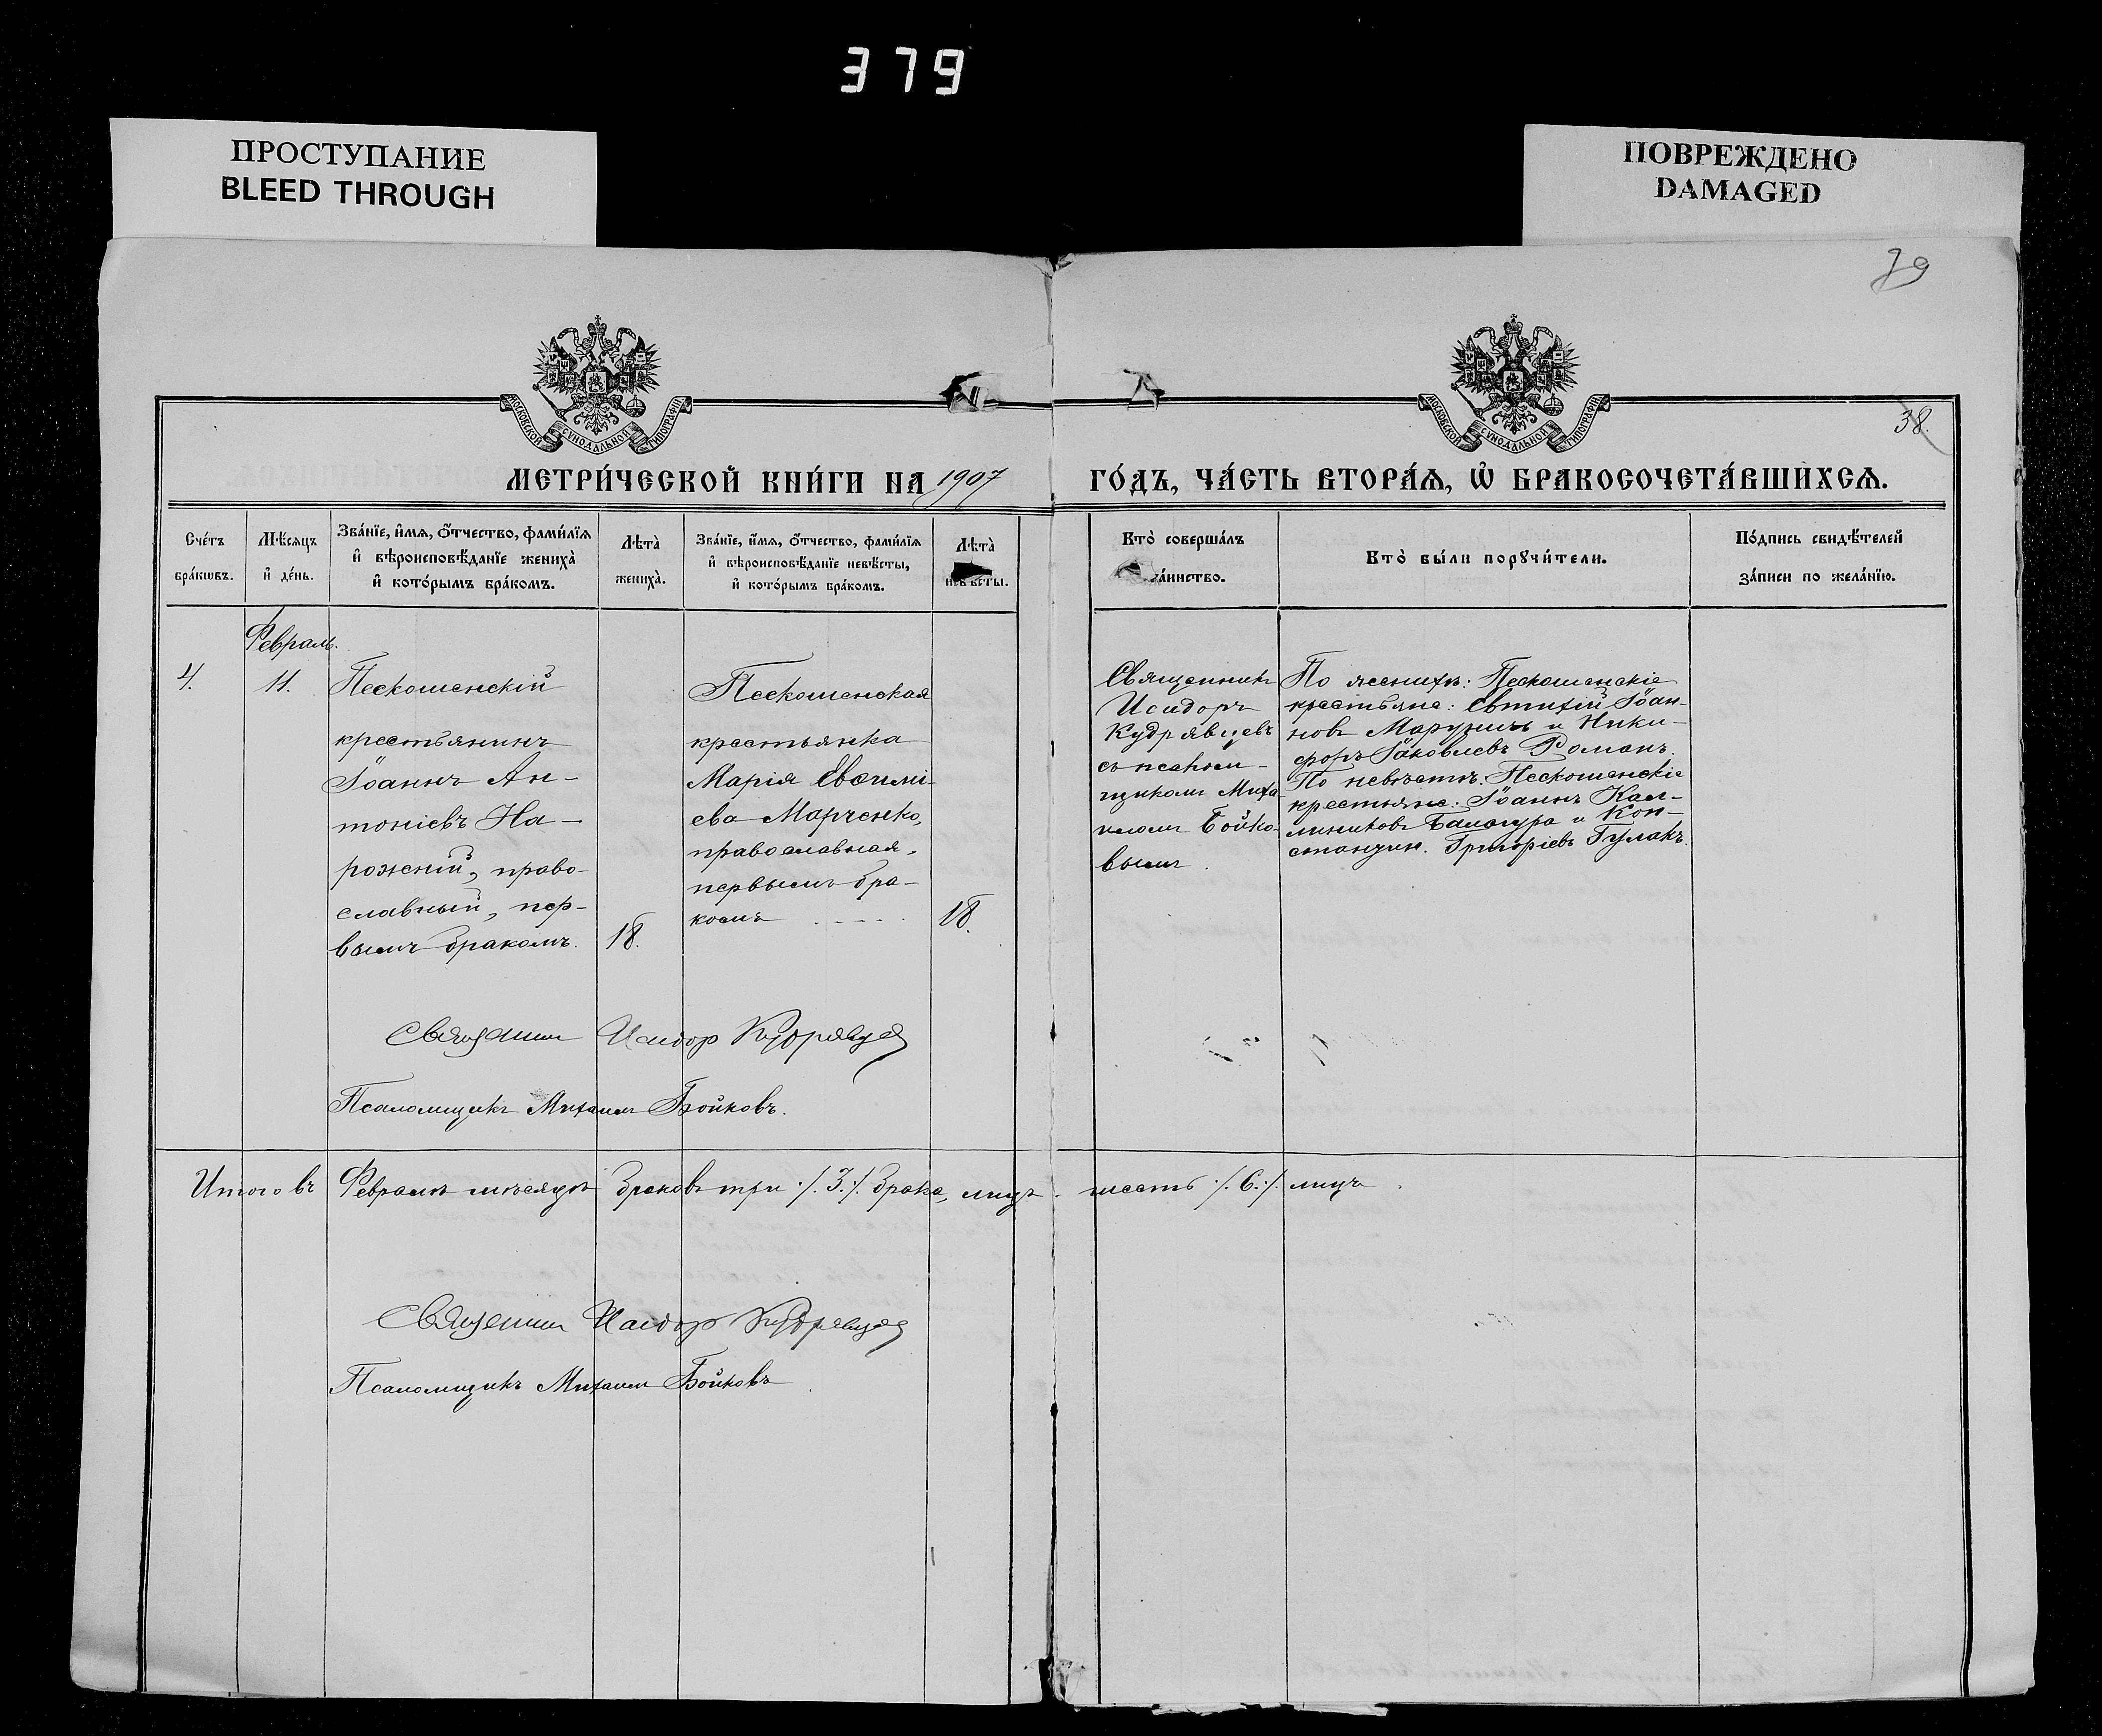 379
ПРОСТУПАНИЕ
BLEED THROUGH
ПОВРЕЖДЕНО
DAMAGED
39
38.
МОСКОВСКОЙ СѴНОДАЛЬНОЙ ТИПОГРАФІИ
МОСКОВСКОЙ СѴНОДАЛЬНОЙ ТИПОГРАФІИ
МЕТРИ́ЧЕСКОЙ КНИ́ГИ НА 1907 ГО́ДЪ, ЧА́СТЬ ВТОРА́Ѧ, Ѡ҆ БРАКОСОЧЕТА́ВШИХСѦ.
Сче́тъ
бра́кѡвъ.
Мѣ́сѧцъ
и҆ де́нь.
Зва́нїе, и҆́мѧ, ѻ҆́тчество, фами́лїѧ
и҆ вѣроисповѣ́данїе жениха̀
и҆ кото́рымъ бра́комъ.
Лѣта̀
жениха̀.
Зва́нїе, и҆́мѧ, ѻ҆́тчество, фами́лїѧ
и҆ вѣроисповѣ́данїе невѣ́сты,
и҆ кото́рымъ бра́комъ.
Лѣта̀
невѣ́сты.
Кто̀ соверша́лъ
та́инство.
Кто̀ бы́ли порꙋчи́тели.
По́дпись свидѣ́телей
за́писи по жела́нїю.
Февраль.
4.
11.
Пескошенскій
крестьянинъ
Іоаннъ Ан-
тоніевъ На-
рожній, право-
славный, пер-
вымъ бракомъ.
18.
Пескошенская
крестьянка
Марія Евѳимі-
ева Марченко,
православная,
первымъ бра-
комъ
18.
Священникъ
Исидоръ
Кудрявцевъ
съ псалом-
щикомъ Миха-
иломъ Бойко-
вымъ.
По женихѣ: Пескошенскіе
крестьяне: Евтихій Іоан-
новъ и Ники-
форъ Іаковлевъ Романъ.
По невѣстѣ: Пескошенскіе
крестьяне: Іоаннъ Кал-
линиковъ Балагура и Кон-
стантин. Григоріевъ Гулакъ.
Священник Исидор Кудрявцев
Псаломщикъ Михаилъ Бойковъ.
Итого въ Февралѣ мѣсяцѣ браковъ три ./. 3 ./. брака, лицъ шесть ./. 6 ./. лицъ.
Священник Исидор Кудрявцев
Псаломщикъ Михаилъ Бойковъ